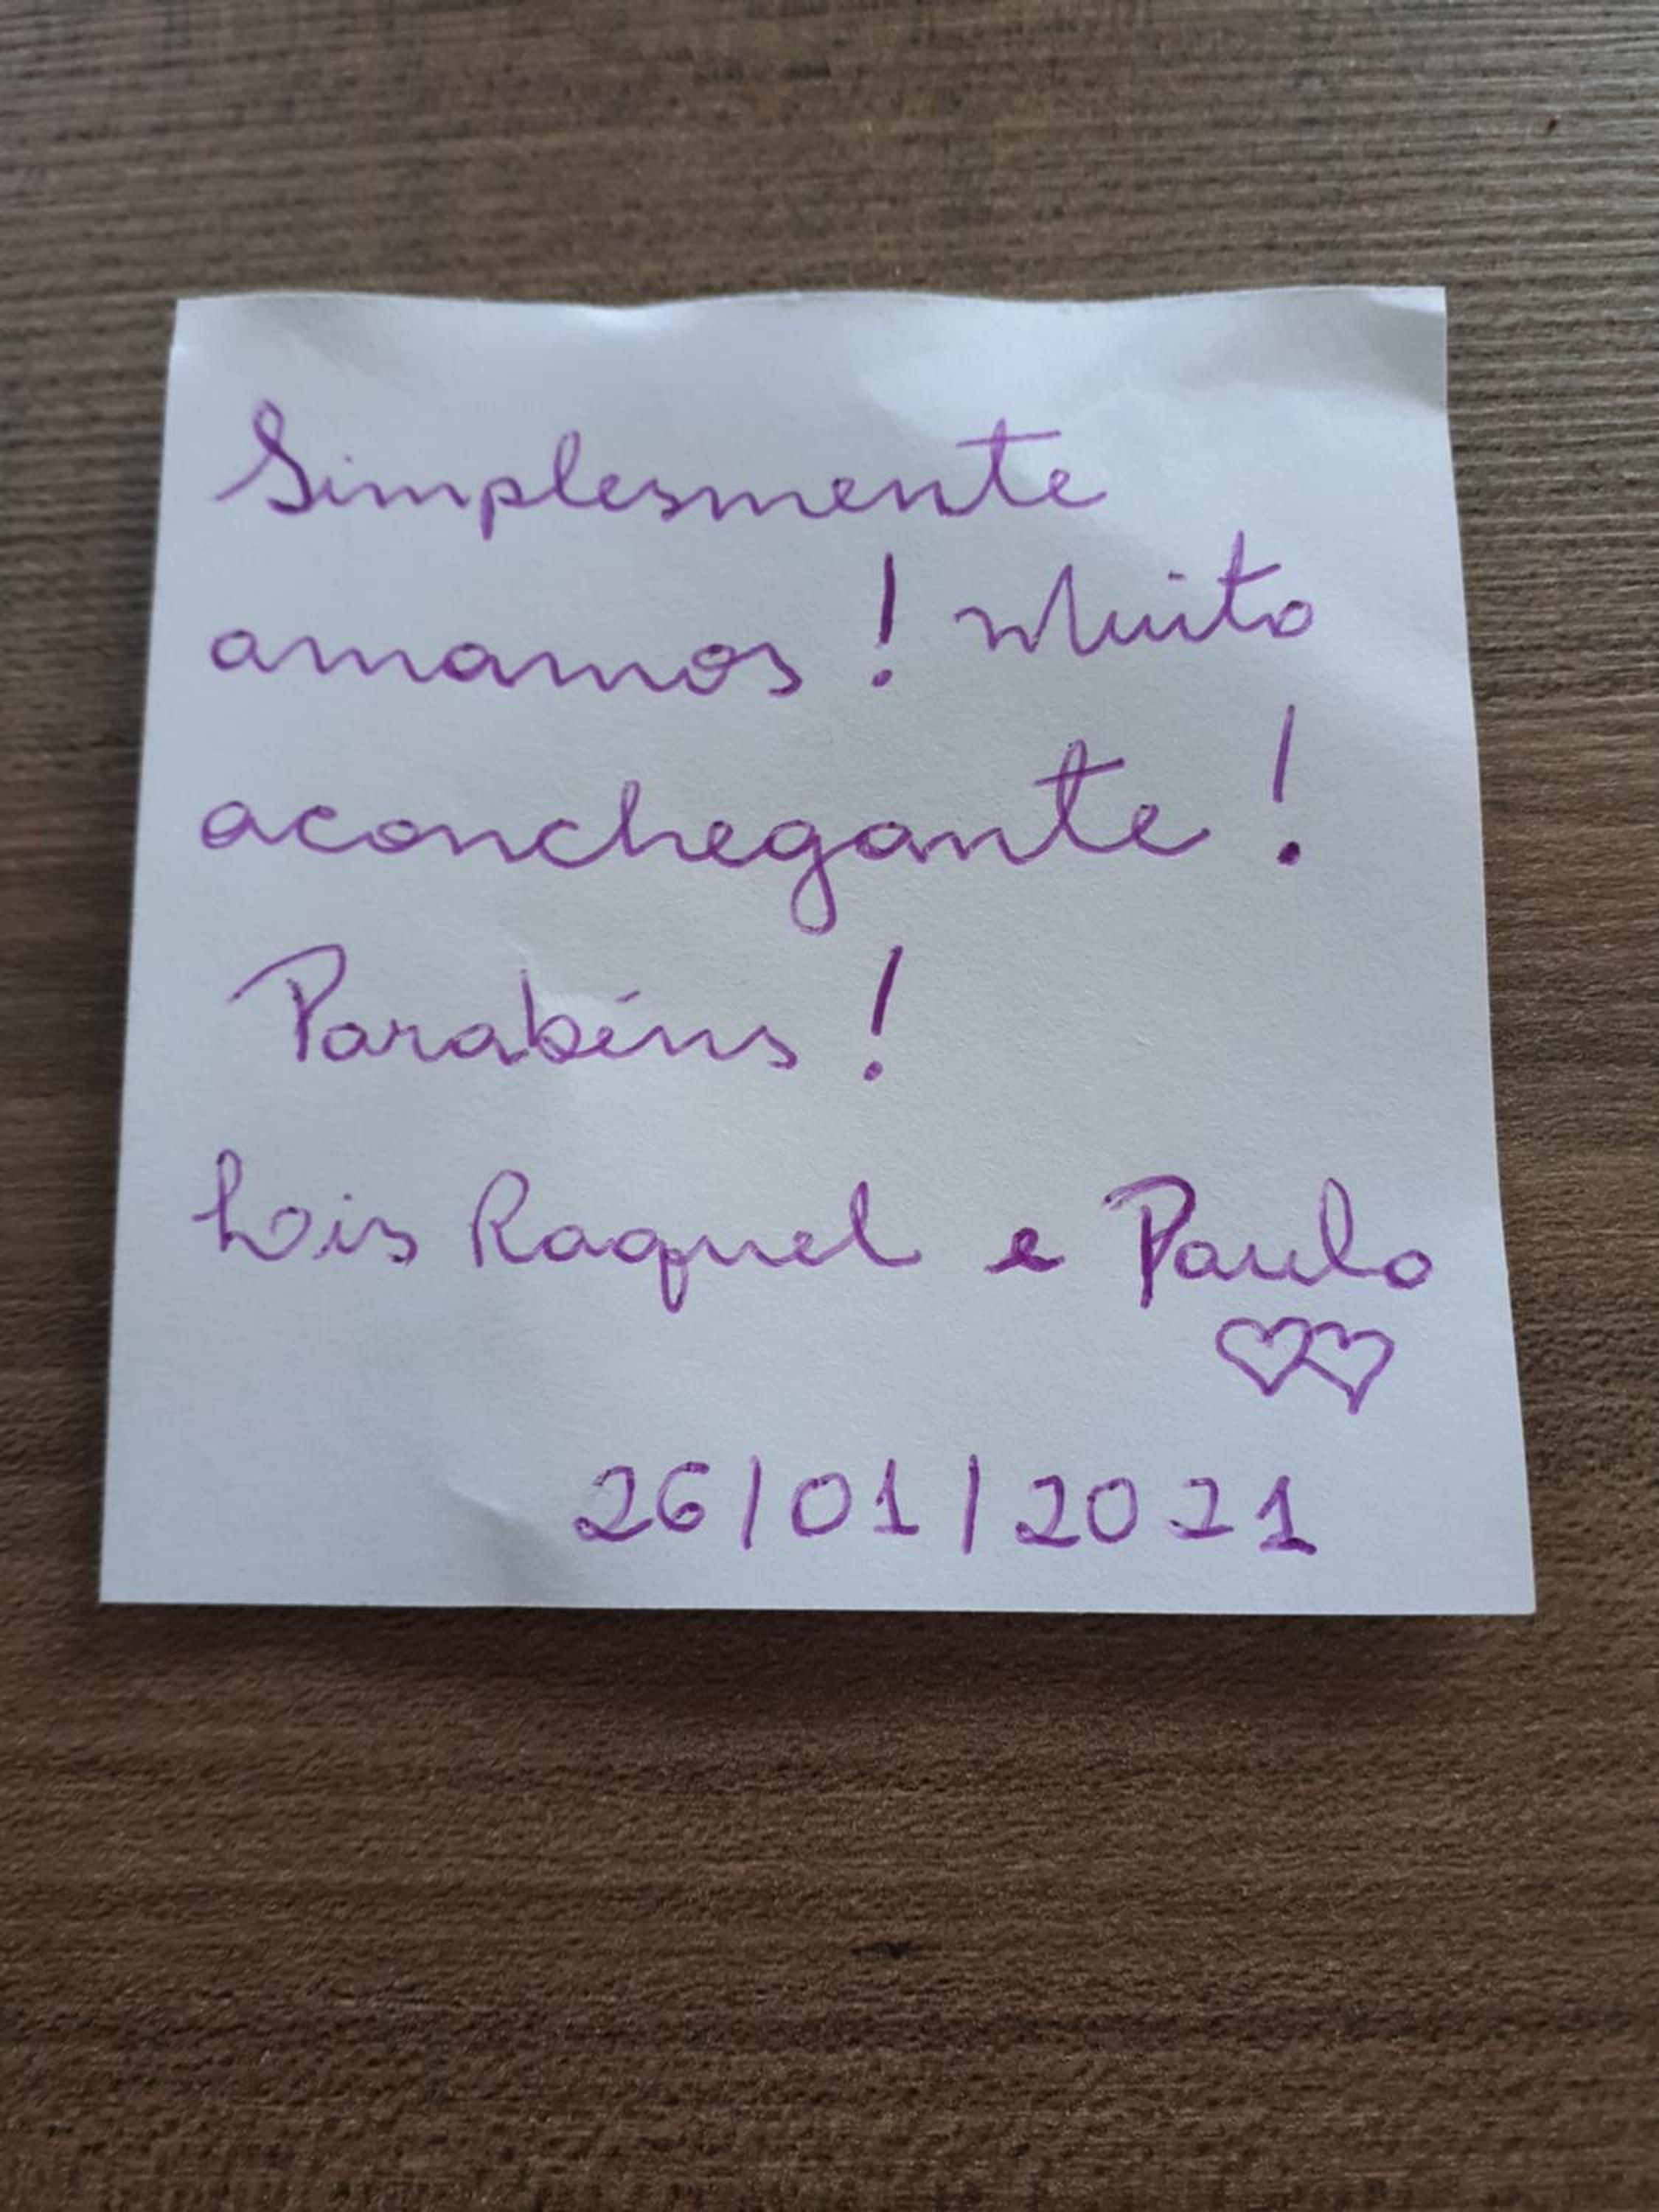 Simplesmente
amamos! Muito
aconchegante!
Parabéns!
Lois Raquel e Paulo
♡♡
26/01/2021